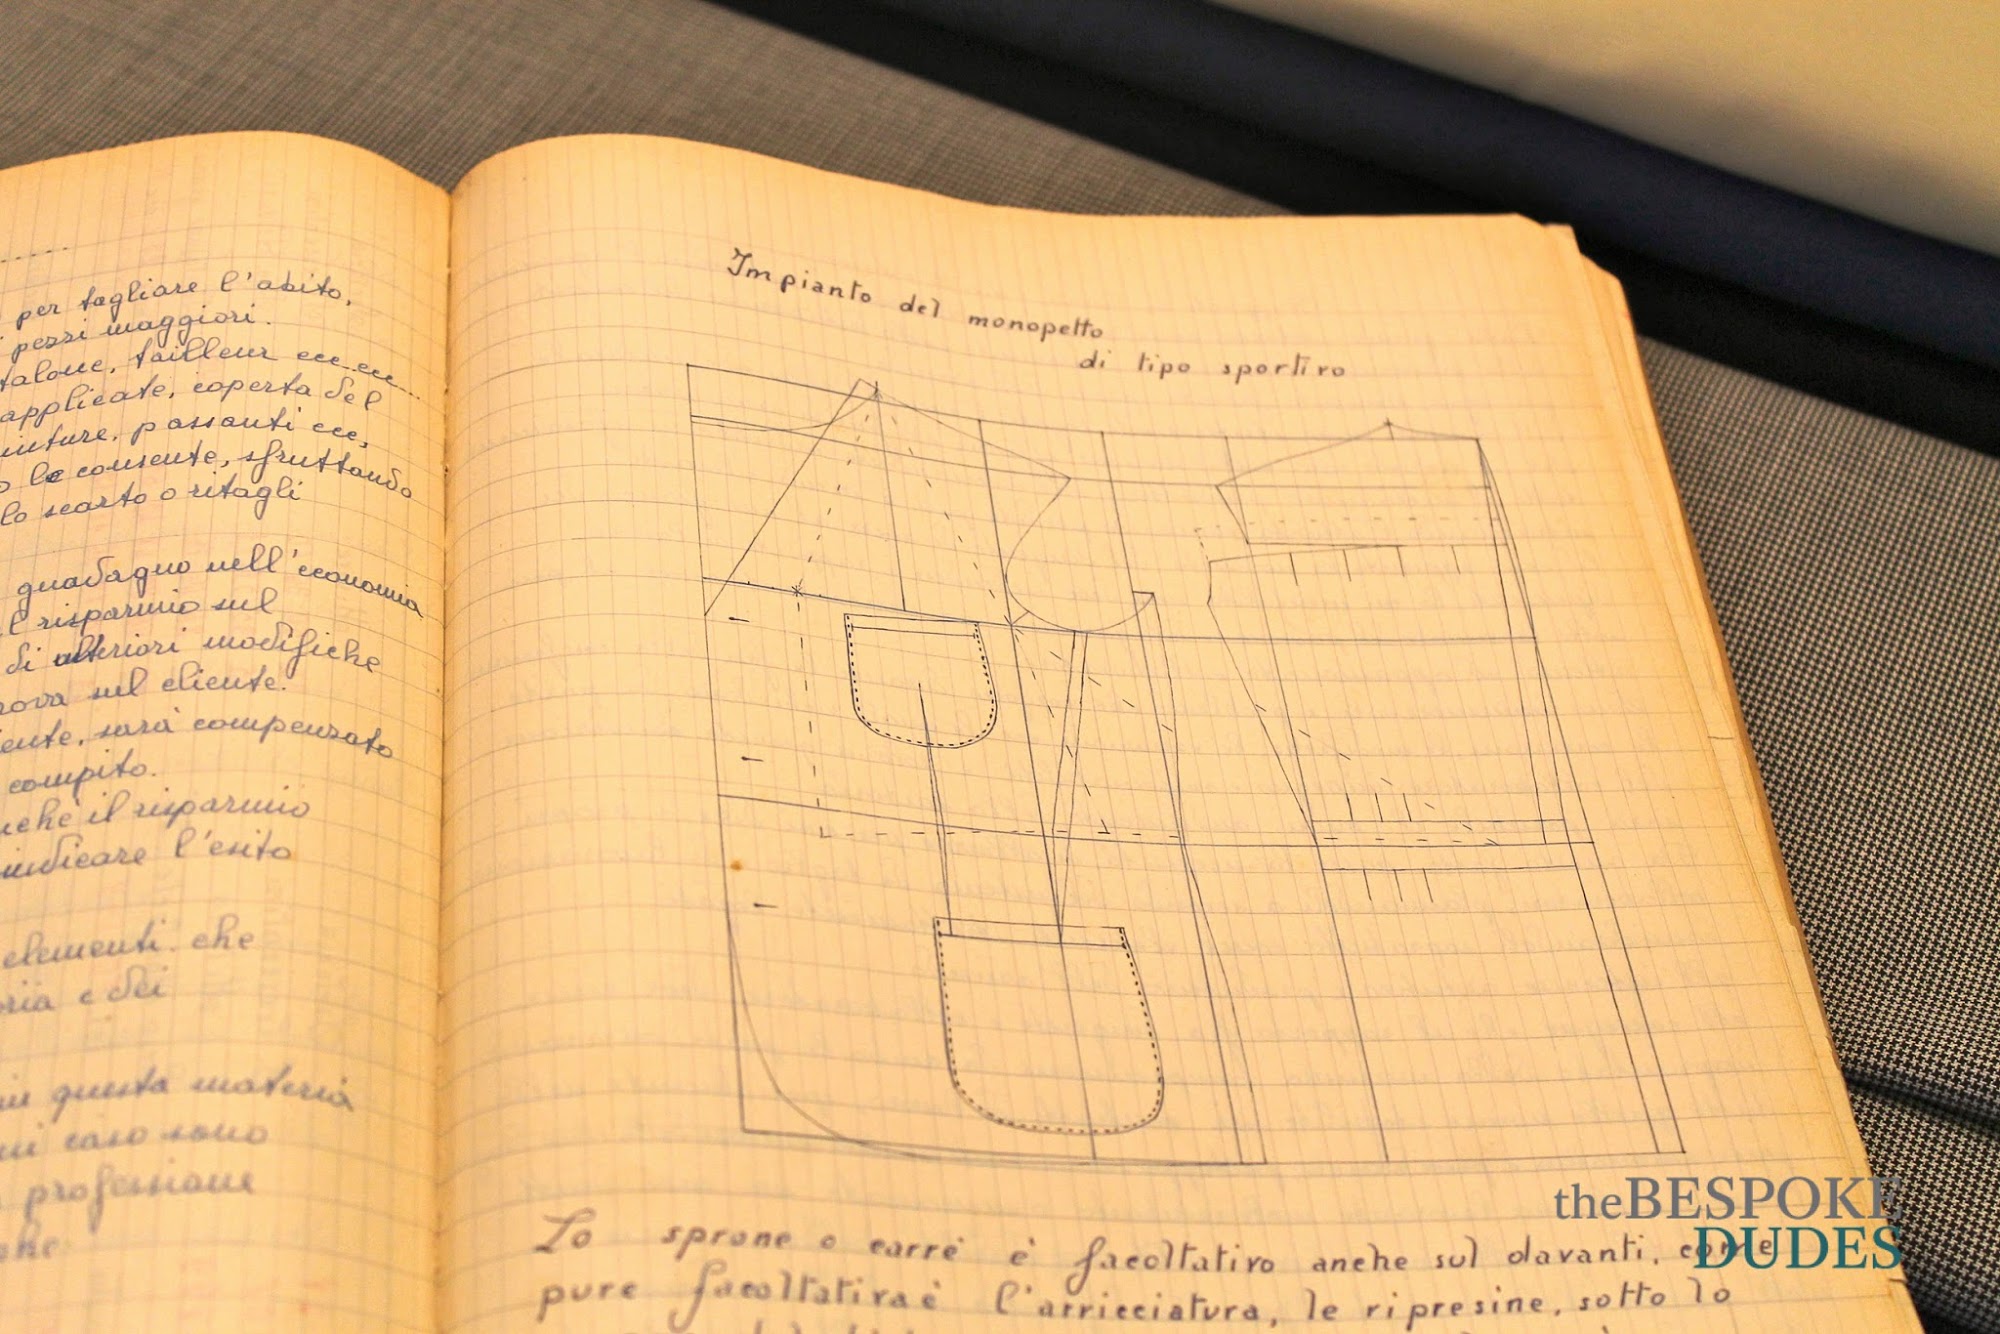 per tagliare l'abito,
pezzi maggiori.
talone, tailleur ecc. ecc...
applicate, coperta del
cinture, passanti ecc,
o lo consente, sfruttando
lo scarto o ritagli
guadagno nell'economia
l risparmio sul
di ulteriori modifiche
rova sul cliente.
iente, sarà compensato
compito.
nchè il risparmio
indicare l'esito
elementi che
oria e dei
in questa materia
ni caso sono
professione
che
Impianto del monopetto
di tipo sportivo
Lo sprone o carrè è facoltativo anche sul davanti, come
pure facoltativa è l'arricciatura, le ripresine, sotto lo
theBESPOKE
DUDES